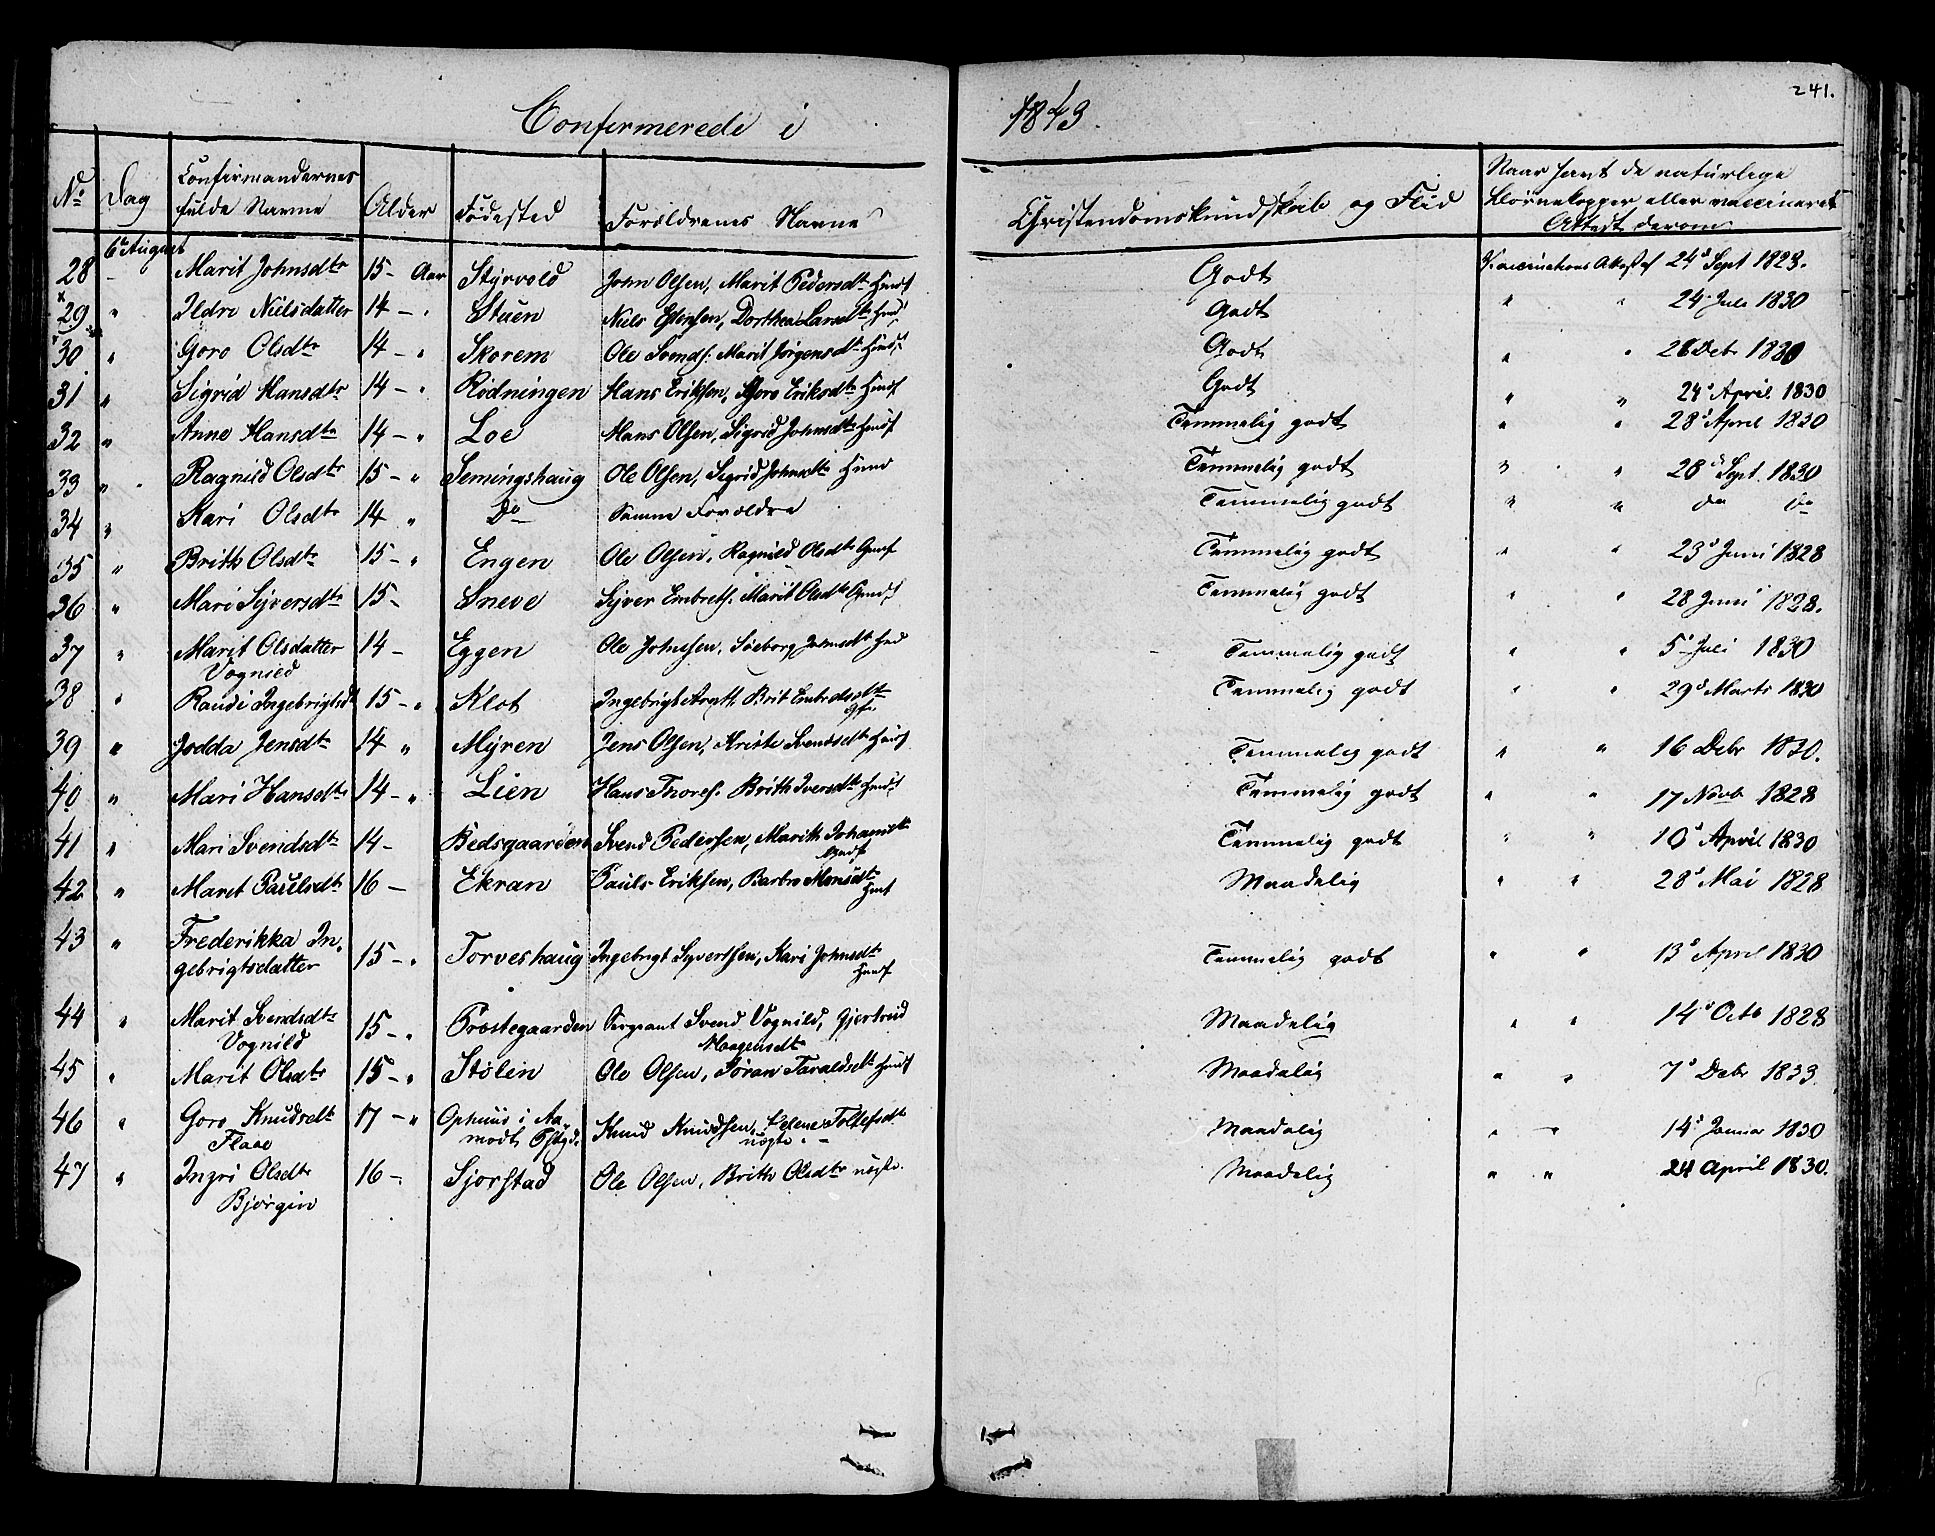 241.
Confirmerede i 1843.
No Dag Confirmandernes fulde Navne Alder Fødested Forældrenes Navne Christendomskundskab og Flid Naar havt de naturlige Børnekopper eller vaccineret Attest derom
6te August
28 Marit Johnsdtr 15 - Aar Styrvold John Olsen, Marit Pedersdtr Huusf Godt Vaccinations Attest af 24d Sept 1828.
29 " Ildri Nielsdatter 14 - " Stuen Niels Estensen, Dorthea Larsdtr Godt " " 24 Juli 1830
30 " Goro Olsdtr 14 - " Skorem Ole Svends. Marit Jørgensdtr Huusf Godt " " 28 Debr 1830
31 " Sigrid Hansdtr 14 - " Rødningen Hans Eriksen, Goro Eriksdtr Huusf Godt " " 24d April 1830
32 " Anne Hansdtr 14 - " Loe Hans Olsen, Sigrid Johnsdtr Huusf Temmelig godt " " 28d April 1830
33 " Ragnild Olsdtr 15 - " Semingshaug Ole Olsen, Sigrid Johnsdtr Temmelig godt " " 28d Sept. 1830
34 " Kari Olsdtr 14 " Do Samme Forældre Temmelig godt " " do do
35 " Brith Olsdtr 15 - " Engen Ole Olsen, Ragnild Olsdtr Temmelig godt " " 23d Juni 1828
36 " Mari Sjversdtr 15 - Sneve Sjver Embrets. Marit Olsdtr Temmelig godt " " 28 Juni 1828.
37 " Marit Olsdatter Vognild 14 - Eggen Ole Johnsen, Sieborg Johnsdtr Temmelig godt " " 5 Juli 1830
38 " Randi Ingebrigtsdt 15 - " Klot Ingebrigt Brit Embretsdtr Temmelig godt " " 29d Marts 1830
39 " Jodda Jensdtr 14 " Myren Jens Olsen, Kristi Svendsdtr Huusf Temmelig godt " " 16 Debr 1830.
40 " Mari Hansdtr 14 - " Lien Hans Thores. Brith Iversdtr Huusf Temmelig godt " " 17 Novb 1828
41 " Mari Svendsdtr 14 - Bedsgaarden Svend Pedersen, Marith Johansdtr Temmelig godt " " 10d April 1830
42 " Maret Paulsdtr 16 - Ekran Pauls Eriksen, Barbro Monsdtr Maadelig " " 28d Mai 1828
43 " Frederikka Ingebrigtsdatter 15 - " Torveshaug Ingebrigt Syvertsen, Kari Johnsdtr Huusf Temmelig godt " " 13d April 1830
44 " Marit Svendsdtr Vognild 15 - " Præstegaarden Sergeant Svend Vognild, Gjertrud Haagensdtr Maadelig " " 14d Octb 1828
45 " Marit Olsdtr 15 - " Stølen Ole Olsen, Jøran Taraldsdtr Huusf Maadelig " " 7d Debr 1833
46 " Goro Knudsdtr Flaae 17 - " Ophuus i Aamodt Pstgd. Knud Knudsen, Helene Tollefsdtr uægte Maadelig " " 14d Januar 1830
47 " Ingri Olsdtr Bjørgin 16 - Sjorstad Ole Olsen, Brith Olsdtr uægte. Maadelig " " 24 April 1830.